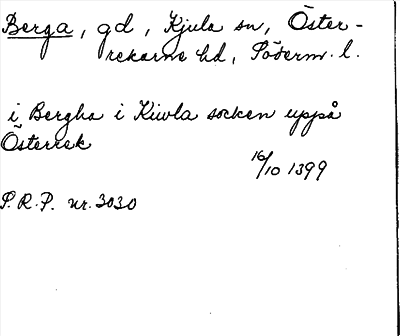 Berga, gd, Kjula sn, Öster-
rekarne hd, Söderm. l.
i Bergha i Kiwla socken uppå
Österrek
16/10 1399
S.R.P. nr. 3030